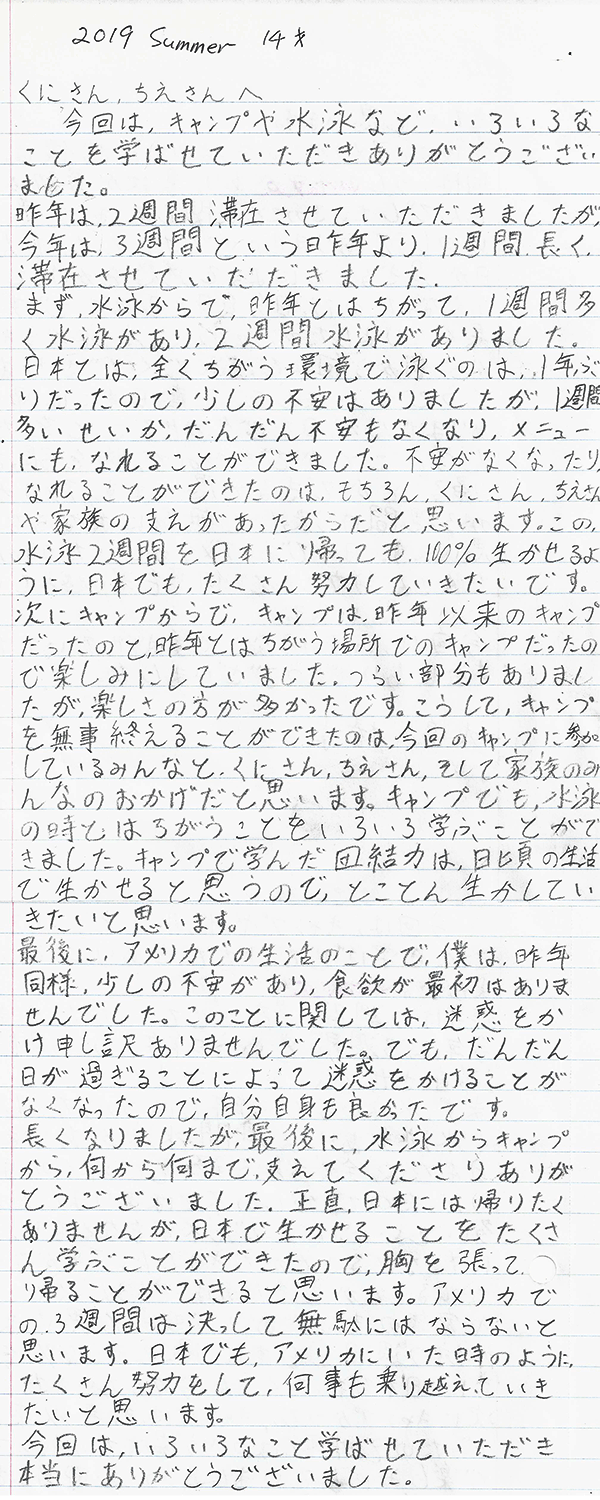 2019 Summer 14才
くにさん,ちえさんへ
今回は,キャンプや水泳など,いろいろな
ことを学ばせていただきありがとうござい
ました。
昨年は,2週間滞在させていただきましたが,
今年は,3週間という昨年より,1週間長く,
滞在させていただきました.
まず,水泳からで,昨年とはちがって,1週間多
く水泳があり,2週間水泳がありました。
日本とは,全くちがう環境で泳ぐのは,1年ぶ
りだったので,少しの不安はありましたが,1週間
多いせいか,だんだん不安もなくなり,メニュー
にも,なれることができました。不安がなくなったり,
なれることができたのは,もちろん,くにさん,ちえさん
や家族の支えがあったからだと思います。この,
水泳2週間を日本に帰っても,100%生かせるよ
うに,日本でも,たくさん努力していきたいです。
次にキャンプからで,キャンプは,昨年以来のキャンプ
だったのと,昨年とはちがう場所でのキャンプだったの
で楽しみにしていました.つらい部分もありまし
たが,楽しさの方が多かったです。こうして,キャンプ
を無事終えることができたのは,今回のキャンプに参加
しているみんなと,くにさん,ちえさん,そして家族のみ
んなのおかげだと思います。キャンプでも,水泳
の時とはちがうことをいろいろ学ぶことがで
きました。キャンプで学んだ団結力は,日頃の生活
で生かせると思うので,とことん生かしてい
きたいと思います。
最後に,アメリカでの生活のことで,僕は,昨年
同様,少しの不安があり,食欲が最初はありま
せんでした。このことに関しては,迷惑をか
け申し訳ありませんでした。でも,だんだん
日が過ぎることによって迷惑をかけることが
なくなったので,自分自身も良かったです。
長くなりましたが,最後に,水泳からキャンプ
から,何から何まで,支えてくださりありが
とうございました.正直,日本には帰りたく
ありませんが,日本で生かせることをたくさ
ん学ぶことができたので,胸を張って,
帰ることができると思います。アメリカで
の3週間は決っして無駄にはならないと
思います。日本でも,アメリカにいた時のように,
たくさん努力をして,何事も乗り越えていき
たいと思います。
今回は,いろいろなこと学ばせていただき
本当にありがとうございました。